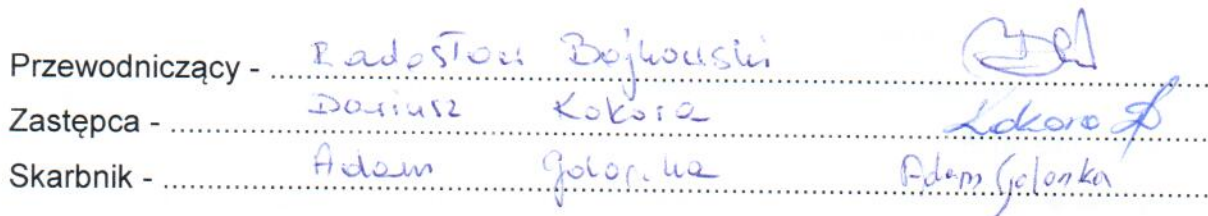 Przewodniczący - Radosław Bojkowski
Zastępca - Dariusz Kokora Kokora
Skarbnik - Adam Golonka Adam Golonka